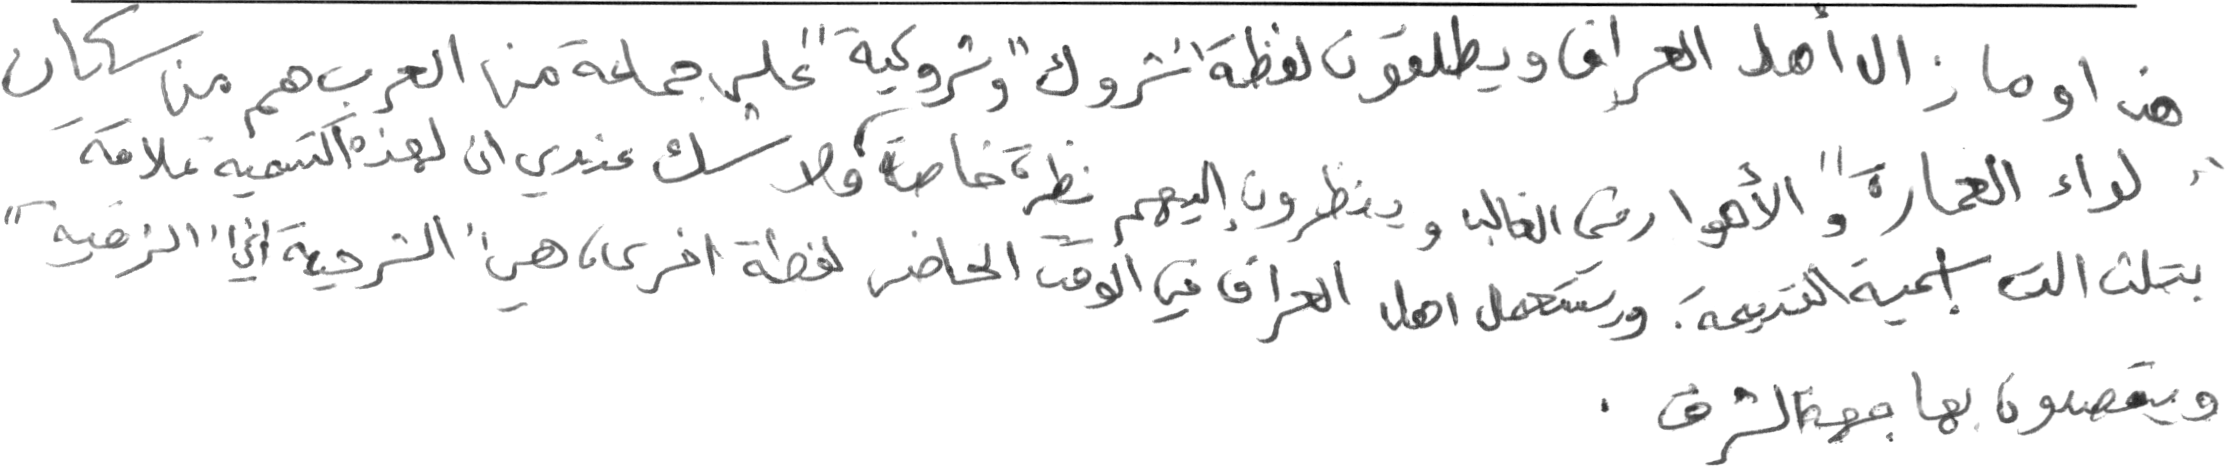 هذا وما زال أهل العراق ويطلقون لفظة "شروك" و"شروكية" على جماعة من العرب هم من سكان
"لواء العمارة" و الأهوار في الغالب وينظرون إليهم نظرة خاصة، ولا شك عندي ان لهذه التسمية علاقة
بتلك التسمية القديمة. ويستعمل اهل العراق في الوقت الحاضر لفظة اخرى، هي "الشرجية أي" "الشرقية"
ويقصدون بها جهة الشرق .